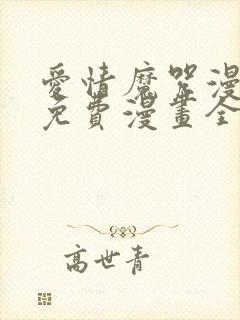 愛情魔咒漫
免費漫畫全
高世青